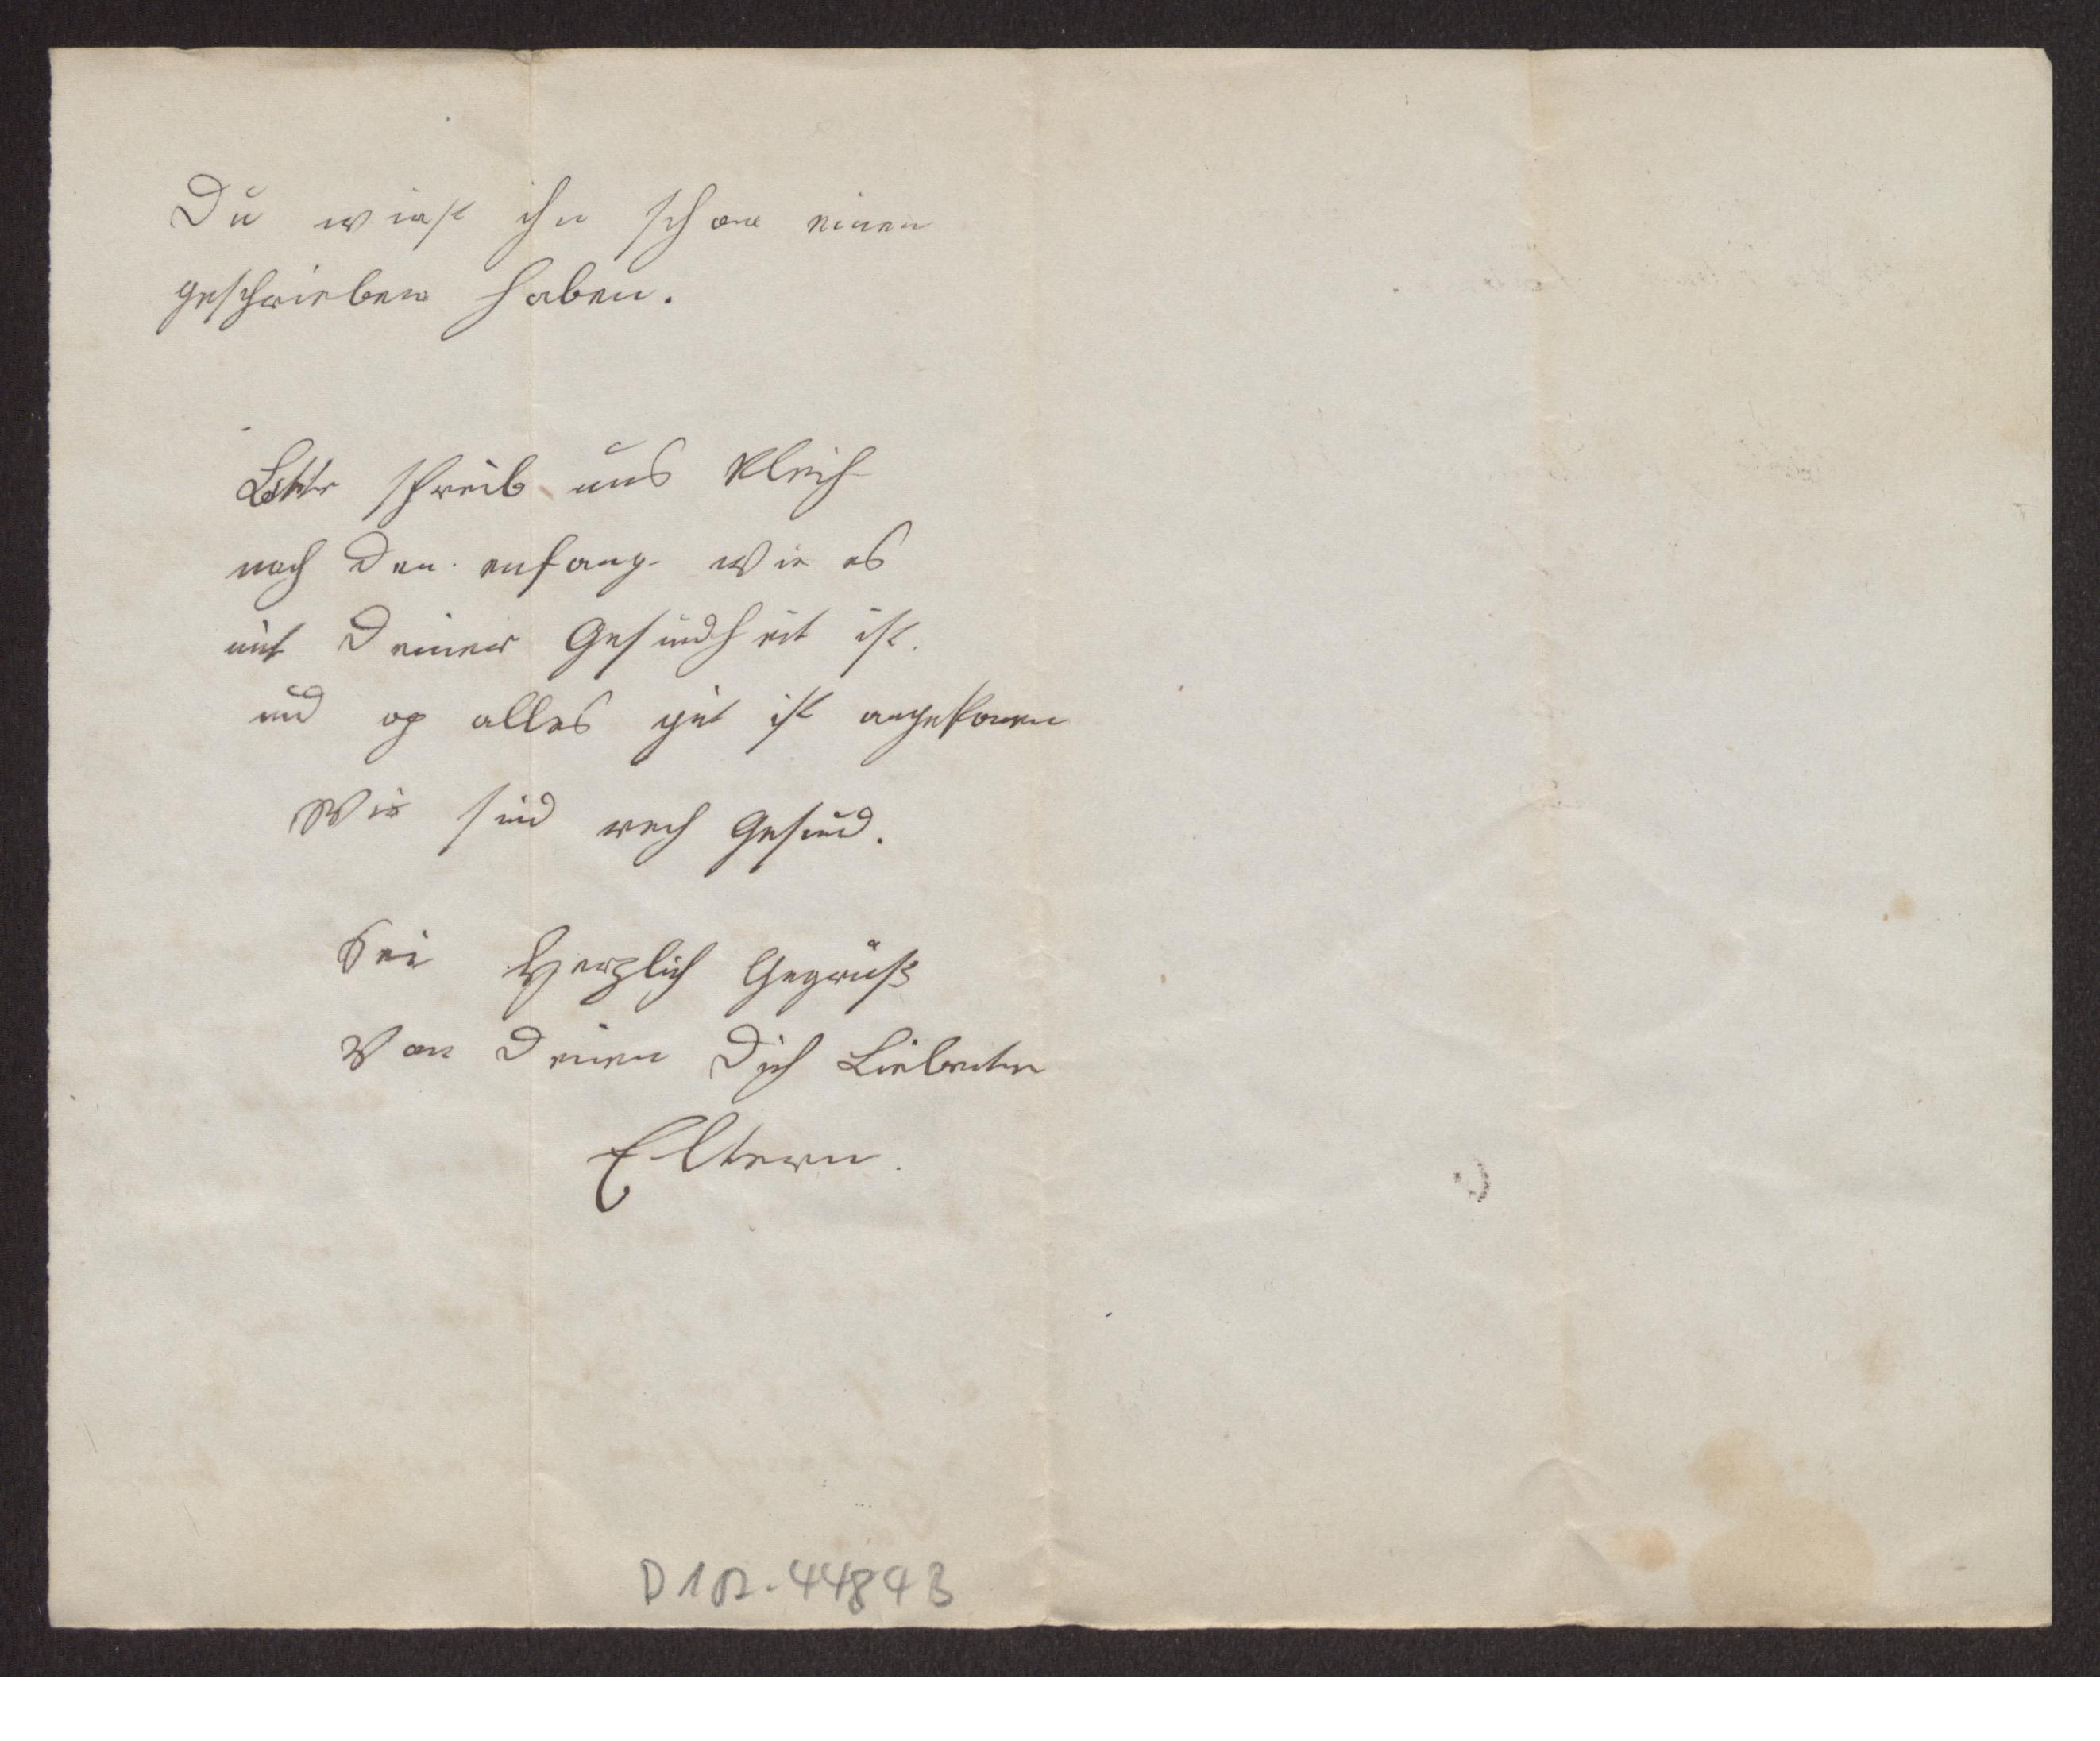 Du wirst ihn schon einen
geschrieben haben.
Bitte schreib uns kleich
nach den enfang wie es
mit Deiner Gesundheit ist.
und op alles gut ist angekomen
Wir sind rech Gesund.
Sei Herzlich Gegrüß
Von Deinen Dich Liebenten
Eltern.